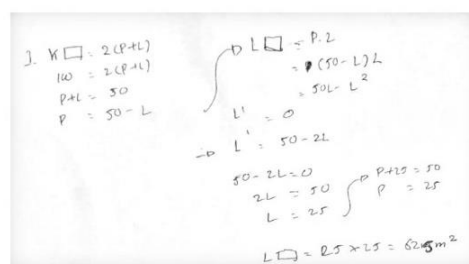 1. K□ = 2(P+L)
100 = 2(P+L)
P+L = 50
P = 50 - L
→ L□ = P.2
= (50-L)L
= 50L - L²
L' = 0
→ L' = 50-2L
50-2L=0
2L = 50
L = 25
→ P+25 = 50
P = 25
L□ = 25 × 25 = 625 m²